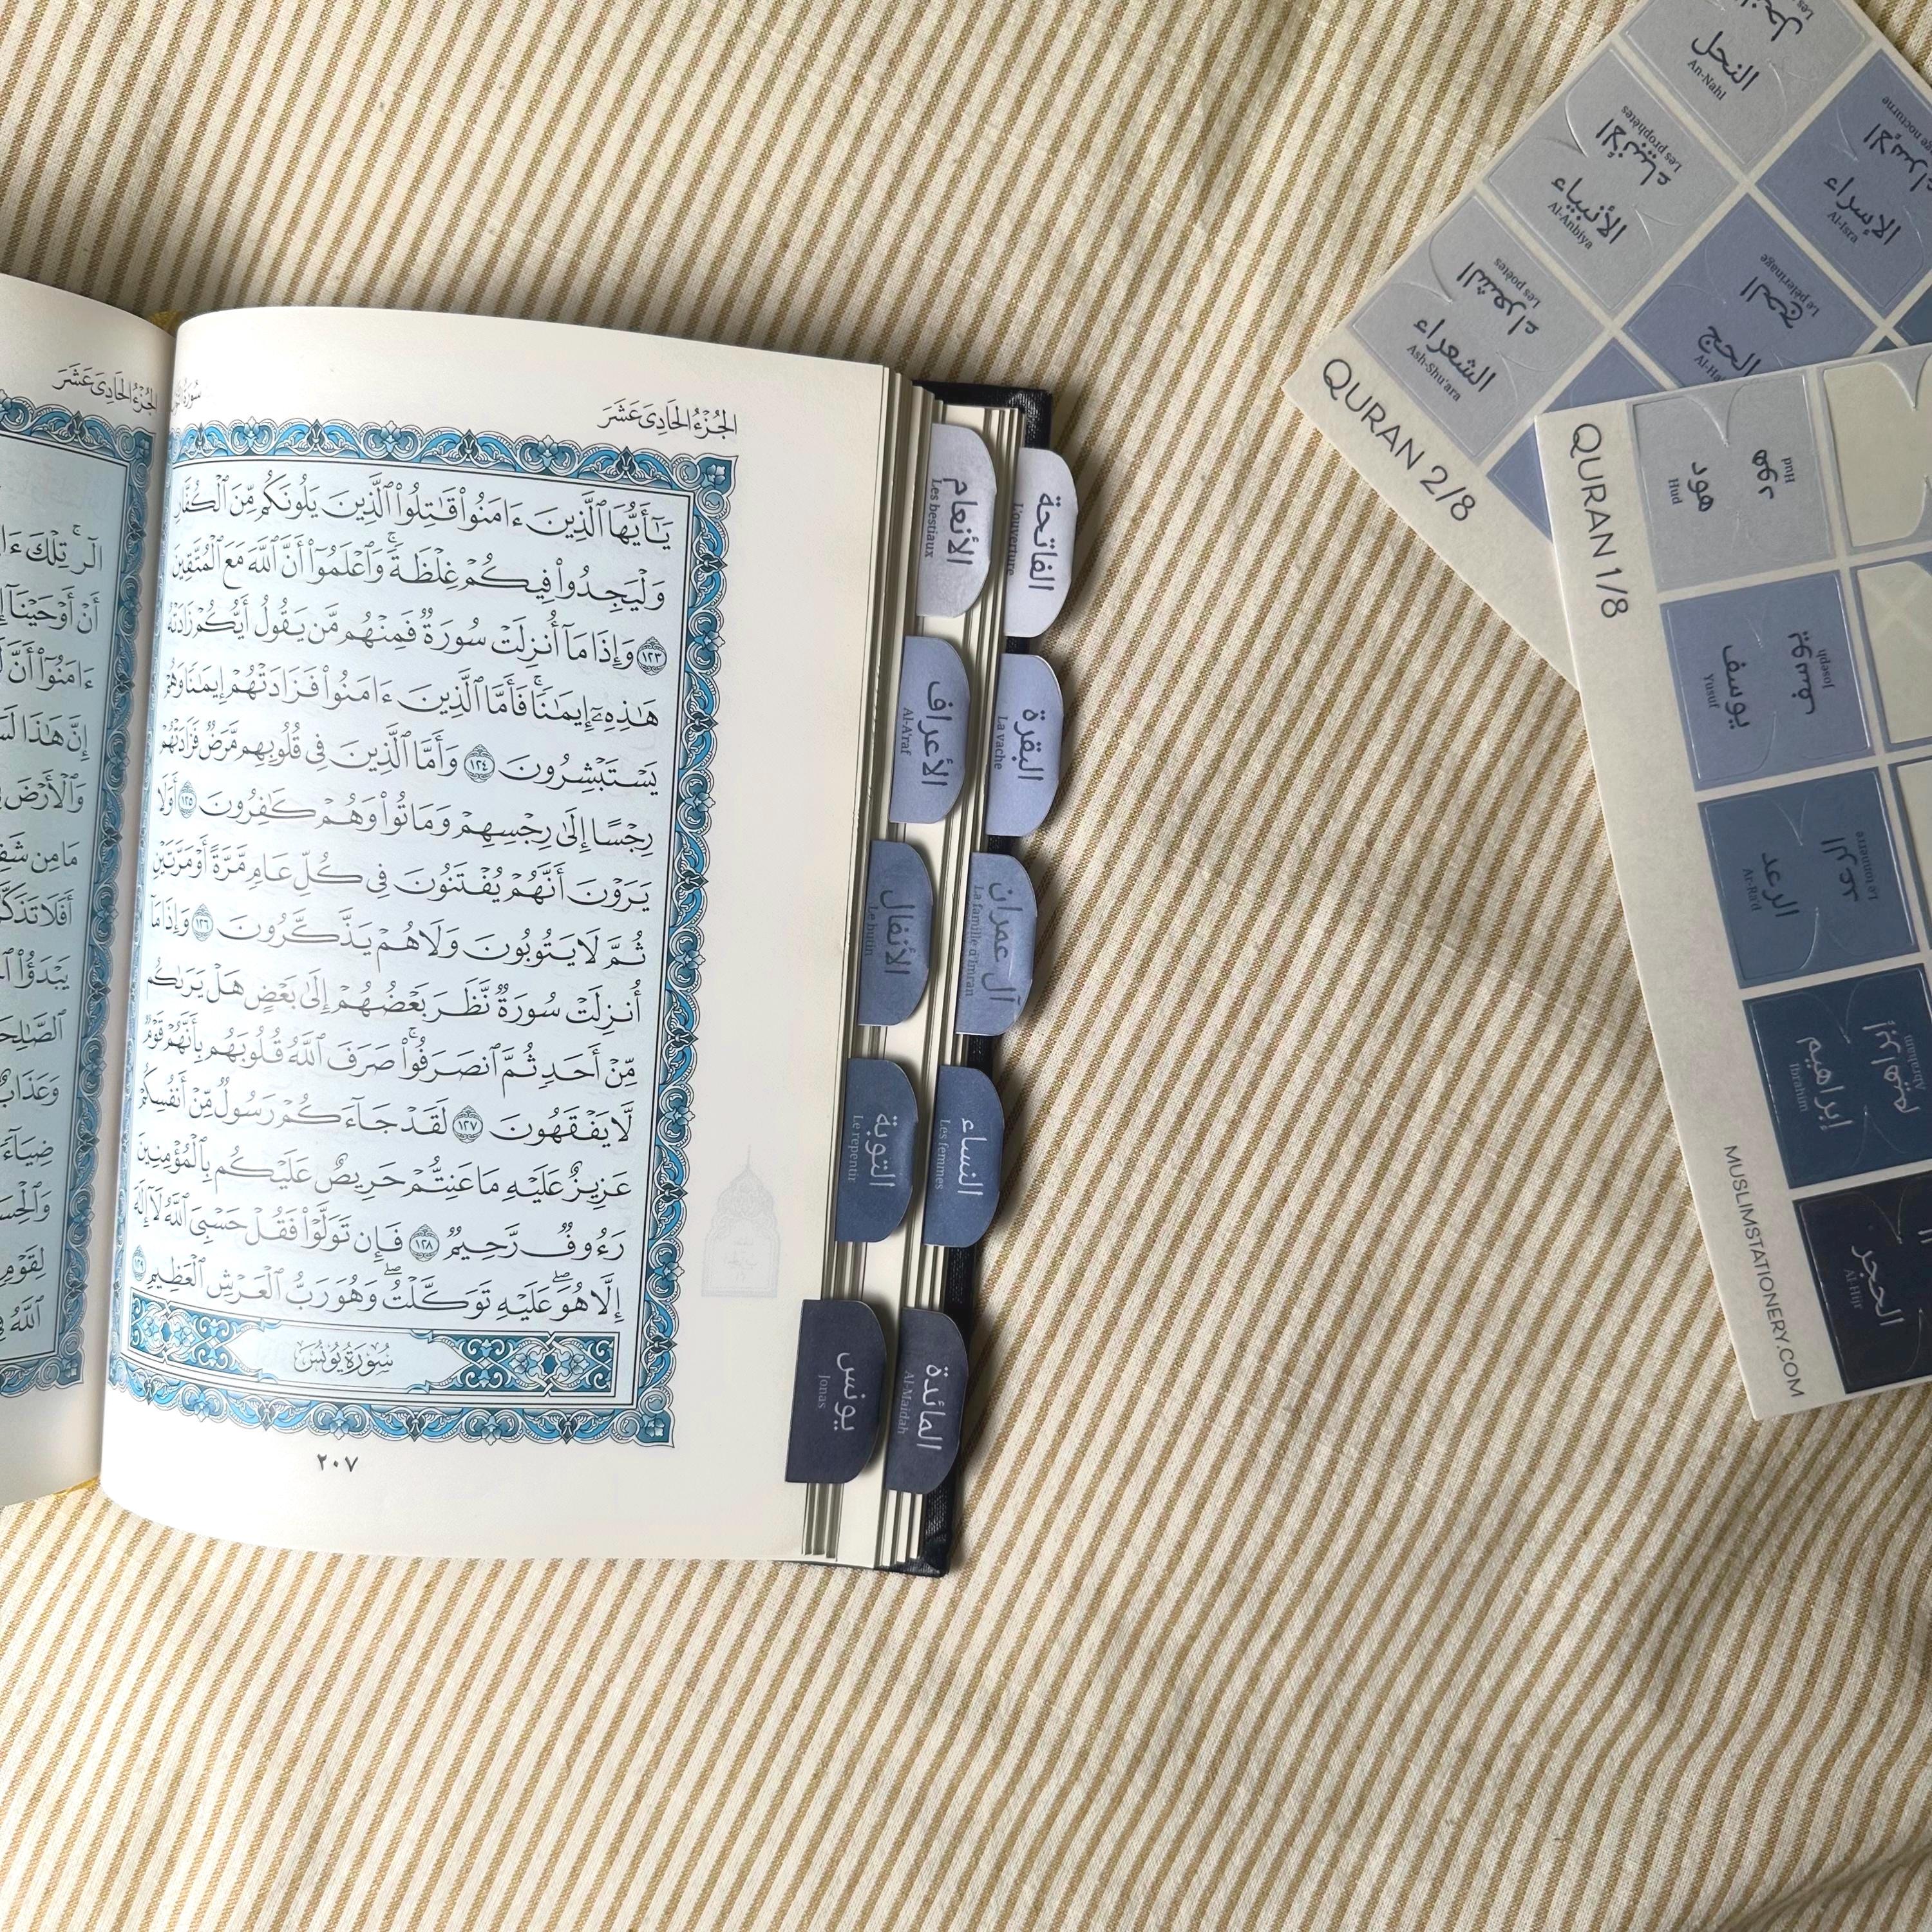 الجُزْءُ الحَادِىَ عَشَرَ
يَـٰٓأَيُّهَا ٱلَّذِينَ ءَامَنُوا۟ قَـٰتِلُوا۟ ٱلَّذِينَ يَلُونَكُم مِّنَ ٱلْكُفَّارِ
وَلْيَجِدُوا۟ فِيكُمْ غِلْظَةً ۚ وَٱعْلَمُوٓا۟ أَنَّ ٱللَّهَ مَعَ ٱلْمُتَّقِينَ
١٢٣ وَإِذَا مَآ أُنزِلَتْ سُورَةٌ فَمِنْهُم مَّن يَقُولُ أَيُّكُمْ زَادَتْهُ
هَـٰذِهِۦٓ إِيمَـٰنًا ۚ فَأَمَّا ٱلَّذِينَ ءَامَنُوا۟ فَزَادَتْهُمْ إِيمَـٰنًا وَهُمْ
يَسْتَبْشِرُونَ ١٢٤ وَأَمَّا ٱلَّذِينَ فِى قُلُوبِهِم مَّرَضٌ فَزَادَتْهُمْ
رِجْسًا إِلَىٰ رِجْسِهِمْ وَمَاتُوا۟ وَهُمْ كَـٰفِرُونَ ١٢٥ أَوَلَا
يَرَوْنَ أَنَّهُمْ يُفْتَنُونَ فِى كُلِّ عَامٍ مَّرَّةً أَوْ مَرَّتَيْنِ
ثُمَّ لَا يَتُوبُونَ وَلَا هُمْ يَذَّكَّرُونَ ١٢٦ وَإِذَا مَآ
أُنزِلَتْ سُورَةٌ نَّظَرَ بَعْضُهُمْ إِلَىٰ بَعْضٍ هَلْ يَرَىٰكُم
مِّنْ أَحَدٍ ثُمَّ ٱنصَرَفُوا۟ ۚ صَرَفَ ٱللَّهُ قُلُوبَهُم بِأَنَّهُمْ قَوْمٌ
لَّا يَفْقَهُونَ ١٢٧ لَقَدْ جَآءَكُمْ رَسُولٌ مِّنْ أَنفُسِكُمْ
عَزِيزٌ عَلَيْهِ مَا عَنِتُّمْ حَرِيصٌ عَلَيْكُم بِٱلْمُؤْمِنِينَ
رَءُوفٌ رَّحِيمٌ ١٢٨ فَإِن تَوَلَّوْا۟ فَقُلْ حَسْبِىَ ٱللَّهُ لَآ إِلَـٰهَ
إِلَّا هُوَ ۖ عَلَيْهِ تَوَكَّلْتُ ۖ وَهُوَ رَبُّ ٱلْعَرْشِ ٱلْعَظِيمِ ١٢٩
سُورَةُ يُونُسَ
٢٠٧
الجُزْءُ الحَادِىَ عَشَرَ
الٓر ۚ تِلْكَ
أَنْ أَوْحَيْنَآ
ءَامَنُوٓا۟ أَنَّ
إِنَّ هَـٰذَا
وَٱلْأَرْضَ
مَا مِن
أَفَلَا
يَبْدَؤُا۟
وَعَذَابٌ
ضِيَآءً
لِقَوْمٍ
ٱللَّهُ
الفاتحة
L'ouverture
البقرة
La vache
آل عمران
La famille d'Imran
النساء
Les femmes
المائدة
Al-Maidah
الأنعام
Les bestiaux
الأعراف
Al-A'raf
الأنفال
Le butin
التوبة
Le repentir
يونس
Jonas
QURAN 2/8
النحل
An-Nahl
الأنبياء
Les prophètes
الأنبياء
Al-Anbiya
الشعراء
Les poètes
الشعراء
Ash-Shu'ara
الإسراء
Al-Isra
الحج
Le pèlerinage
الحج
QURAN 1/8
هود
Hud
هود
Hud
يوسف
Joseph
يوسف
Yusuf
الرعد
Le tonnerre
الرعد
Ar-Ra'd
إبراهيم
Abraham
إبراهيم
Ibrahim
الحجر
Al-Hijr
MUSLIMSTATIONERY.COM